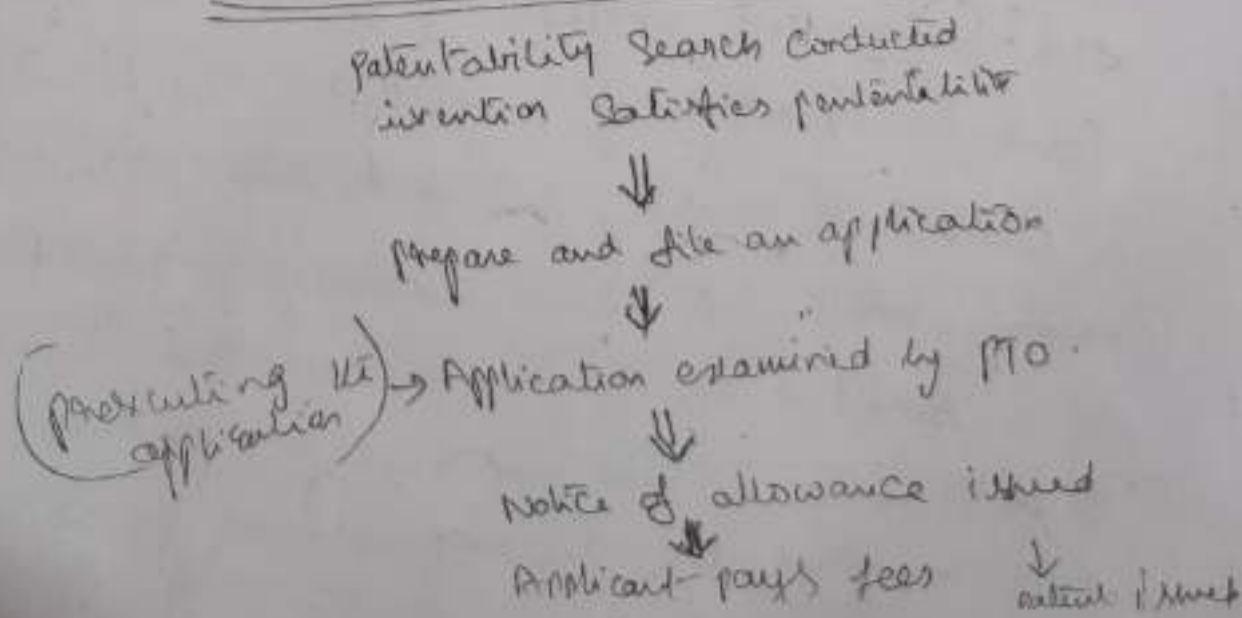 patentability Search Conducted
invention Satisfies pantentability
⇓
prepare and file an application
⇓
(prosecuting the
application) → Application examined by PTO.
⇓
Notice of allowance issued
↓ ↓
Applicant pays fees patent issued